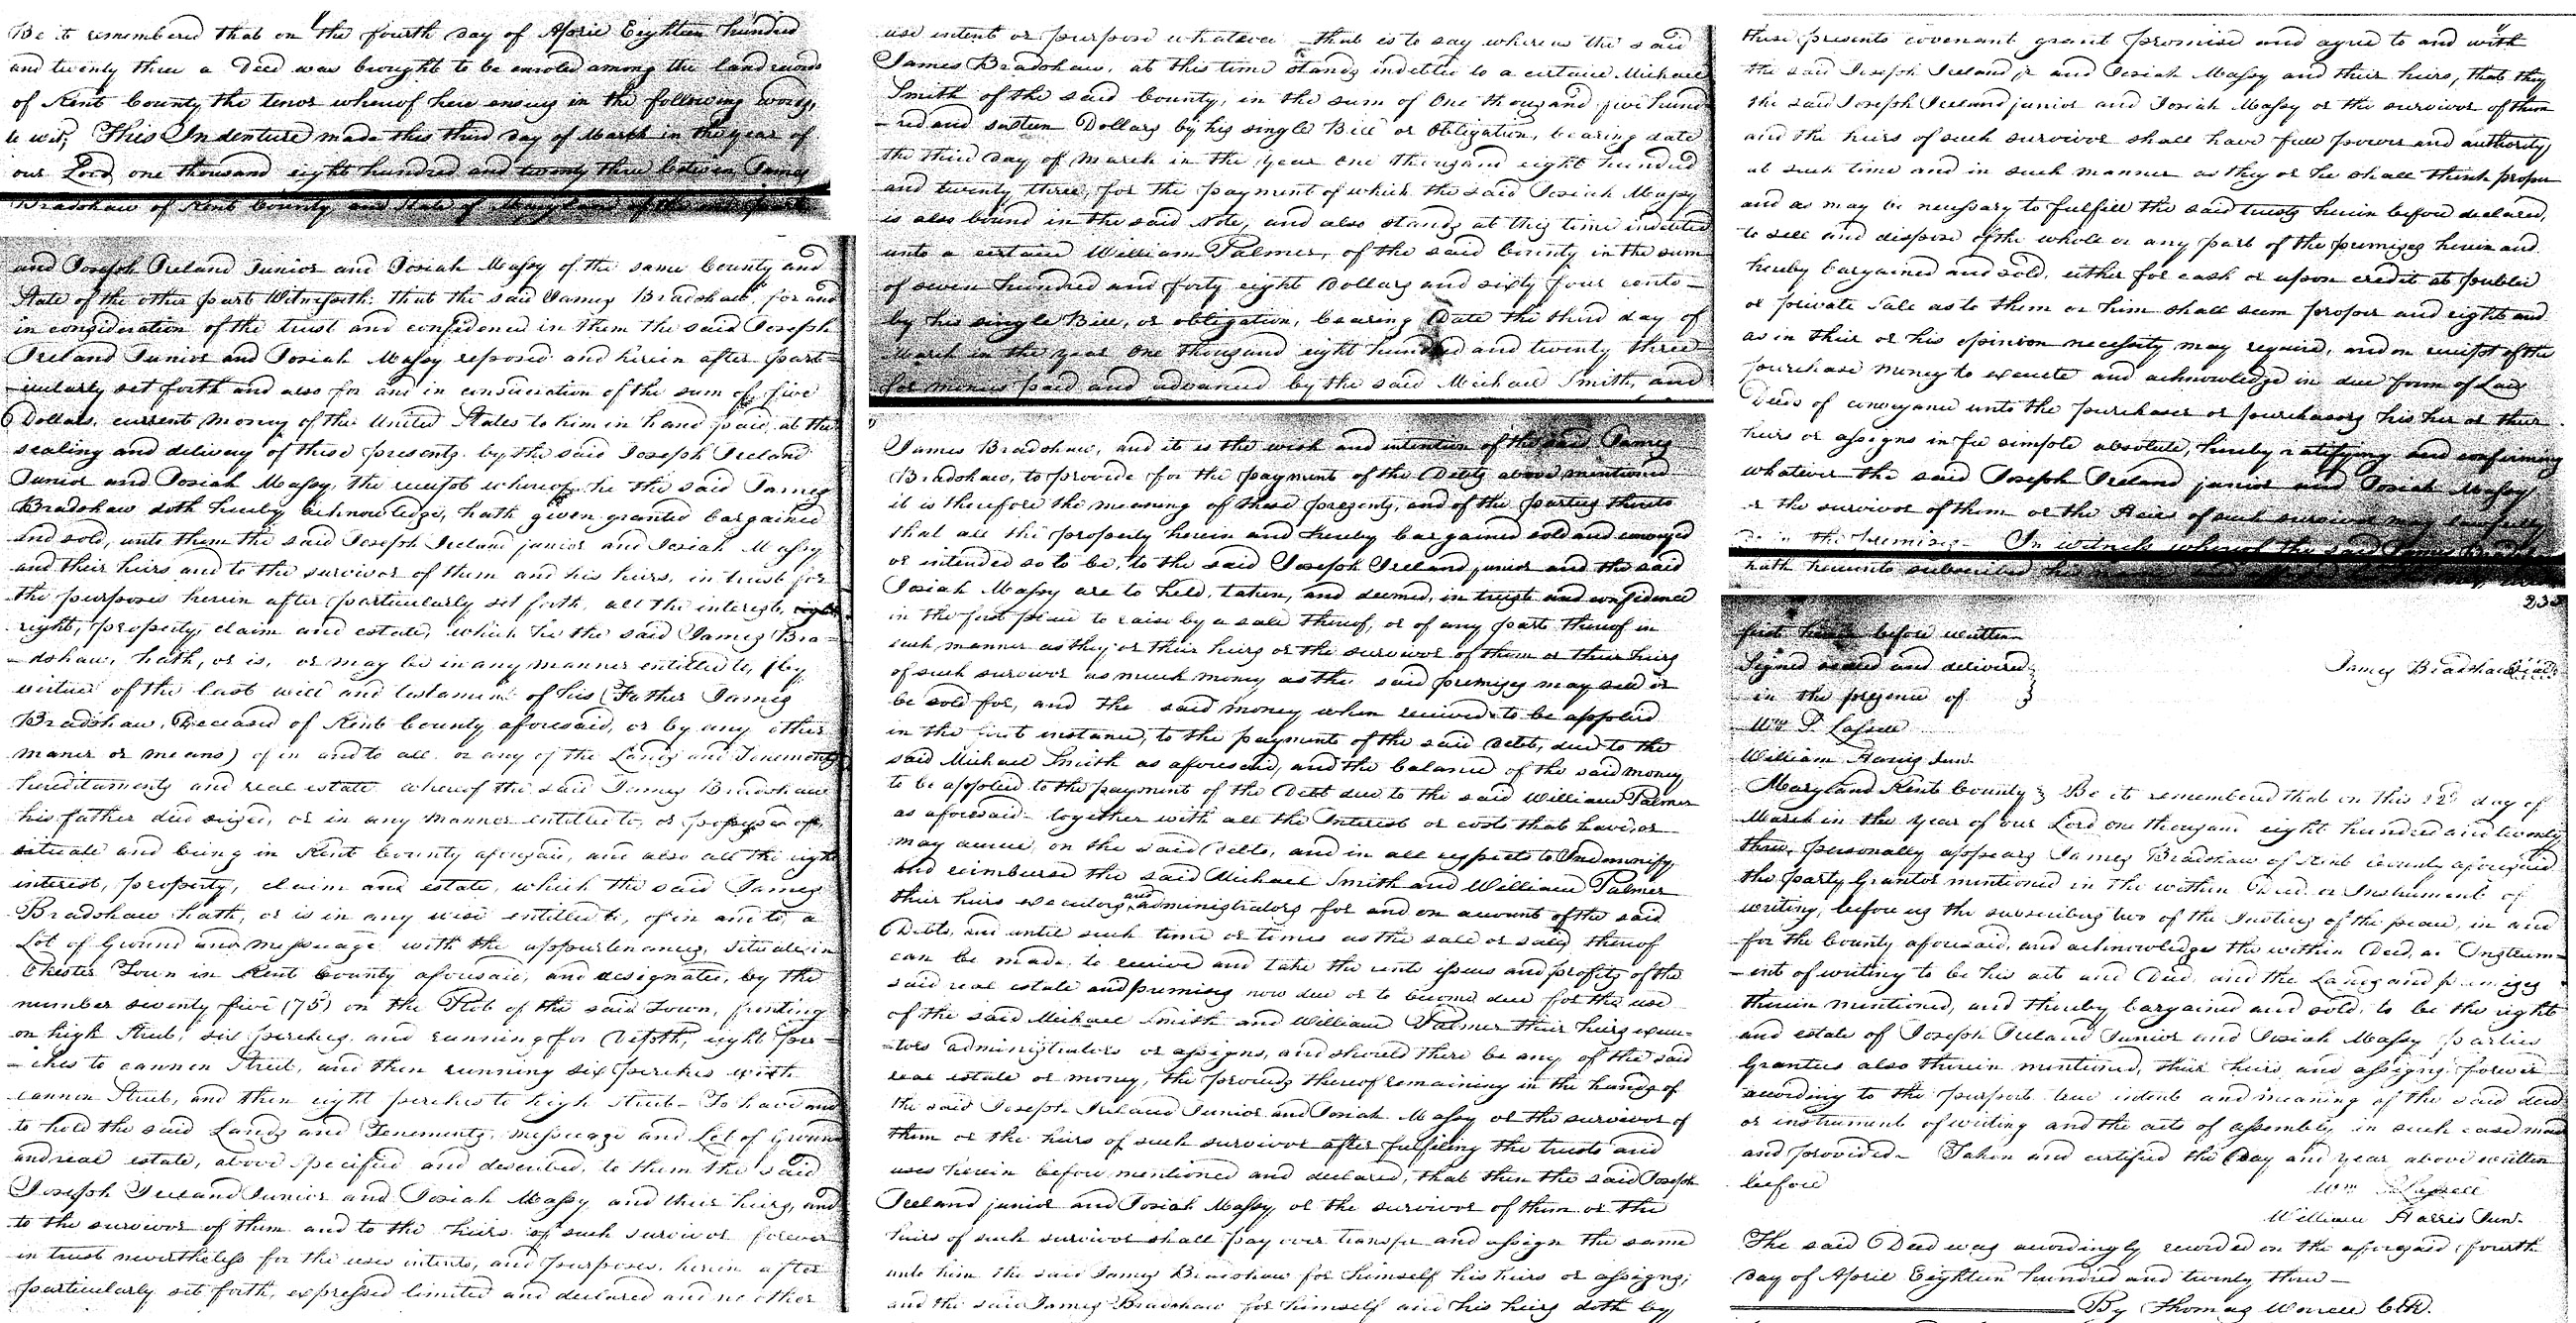 Be it remembered that on the fourth day of April Eighteen hundred
and twenty three a Deed was brought to be enroled among the land records
of Kent County the tenor whereof here ensues in the following words,
to wit, This Indenture made this third day of March in the year of
our Lord one thousand eight hundred and twenty three between James
Bradshaw of Kent County and State of Maryland of the one part
and Joseph Ireland Junior and Josiah Massy of the same County and
State of the other part Witnesseth: that the said James Bradshaw, for and
in consideration of the trust and confidence in them the said Joseph
Ireland Junior and Josiah Massy reposed and herein after part=
=icularly set forth and also for and in consideration of the sum of five
Dollars, current money of the United States to him in hand paid, at the
sealing and delivery of these presents by the said Joseph Ireland
Junior and Josiah Massy, the receipt whereof he the said James
Bradshaw doth hereby acknowledge, hath given granted bargained
and sold, unto them the said Joseph Ireland junior and Josiah Massy
and their heirs and to the survivor of them and his heirs, in trust for
the purposes herein after particularly set forth, all the interest,
right, property, claim and estate, which he the said James Bra=
=dshaw, hath, or is, or may be in any manner entitled to, (by
virtue of the last will and testament of his Father James
Bradshaw, Deceased of Kent County aforesaid, or by any other
maner or means) of in and to all or any of the Lands and Tenements
hereditaments and real estate whereof the said James Bradshaw
his father died seized, or in any manner entitled to, or possessed of,
situate and being in Kent County aforesaid, and also all the right
interest, property, claim and estate, which the said James
Bradshaw hath, or is in any wise entitled to, of in and to, a
Lot of Ground and messuage with the appurtenances, situate in
Chester Town in Kent County aforesaid, and designated, by the
number seventy five (75) on the Plot of the said Town, fronting
on high Street, six perches, and running for Depth, eight per=
=ches to cannon Street, and then running six perches with
cannon Street, and then eight perches to high Street- To have and
to hold the said Lands and Tenements, messuage and Lot of Ground
and real estate, above specified and described, to them the said
Joseph Ireland Junior and Josiah Massy and their heirs, and
to the survivor of them and to the heirs of such survivor forever
in trust nevertheless for the uses intents, and purposes, herein after
particularly set forth, expressed limited and declared and no other
use intent or purpose whatever that is to say whereas the said
James Bradshaw, at this time stands indebted to a certain Michael
Smith of the said County, in the sum of One thousand five hund
=red and sixteen Dollars by his single Bill or Obligation, bearing date
the third day of March in the year one thousand eight hundred
and twenty three, for the payment of which the said Josiah Massy
is also bound in the said Note, and also stands at this time indebted
unto a certain William Palmer, of the said County in the sum
of seven hundred and forty eight Dollars and sixty four cents-
by his single Bill, or obligation, bearing Date the third day of
March in the year One thousand eight hundred and twenty three
for monies paid and advanced by the said Michael Smith, and
James Bradshaw, and it is the wish and intention of the said James
Bradshaw, to provide for the payment of the Debts above mentioned
it is therefore the meaning of these presents, and of the parties thereto
that all the property herein and hereby bargained sold and conveyed
or intended so to be, to the said Joseph Ireland junior and the said
Josiah Massy are to held, taken, and deemed, in trust and confidence
in the first place to raise by a sale thereof, or of any part thereof in
such manner as they or their heirs or the survivor of them or their heirs
of such survivor as much money as the said premises may sell or
be sold for, and the said money when received to be applied
in the first instance, to the payment of the said Debt, due to the
said Michael Smith as aforesaid, and the balance of the said money
to be applied to the payment of the Debt due to the said William Palmer
as aforesaid- together with all the Interest or costs that have, or
may accrue, on the said Debts, and in all respects to Indemnify
and reimburse the said Michael Smith and William Palmer
their heirs executors and administrators for and on account of the said
Debts, and until such time or times as the sale or sales thereof
can be made, to receive and take the rents issues and profits of the
said real estate and premises now due or to become due for the use
of the said Michael Smith and William Palmer their heirs execu-
=tors administrators or assigns, and should there be any of the said
real estate or money, the proceeds thereof remaining in the hands of
the said Joseph Ireland Junior and Josiah Massy or the survivor of
them or the heirs of such survivor after fulfiling the trusts and
uses herein before mentioned and declared, that then the said Joseph
Ireland junior and Josiah Massy or the survivor of them or the
heirs of such survivor shall pay over transfer and assign the same
unto him the said James Bradshaw for himself his heirs or assigns;
and the said James Bradshaw for himself and his heirs doth by
these presents covenant grant promise and agree to and with
the said Joseph Ireland jr and Josiah Massy and their heirs, that they
the said Joseph Ireland junior and Josiah Massy or the survivor of them
and the heirs of such survivor shall have full power and authority,
at such time and in such manner as they or he shall think proper
and as may be necessary to fulfill the said trusts herein before declared,
to sell and dispose of the whole or any part of the premises herein and
hereby bargained and sold, either for cash or upon credit at public
or private Sale as to them or him shall seem proper and right and
as in their or his opinion necessity may require, and on receipt of the
purchase money to execute and acknowledge in due form of Law
Deeds of conveyance unto the purchaser or purchasers his her or their
heirs or assigns in fee simple absolute, hereby ratifying and confirming
whatever the said Joseph Ireland junior and Josiah Massy
or the survivor of them or the Heirs of such survivor may lawfully
do in the premises- In witness whereof the said James Bradshaw
hath hereunto subscribed his
first herein before written
Signed sealed and delivered
in the presence of
James Bradshaw
Wm P. Lassell
William Harris Junr.
Maryland Kent County; Be it remembered that on this 12th day of
March in the year of our Lord one thousand eight hundred and twenty
three, personally appears James Bradshaw of Kent County aforesaid
the party Grantor mentioned in the within Deed or Instrument of
writing, before us the subscribers two of the Justices of the peace, in and
for the County aforesaid, and acknowledges the within Deed, or Instrum=
=ent of writing to be his act and Deed, and the Lands and premises
therein mentioned, and thereby bargained and sold, to be the right
and estate of Joseph Ireland Junior and Josiah Massy parties
Grantees also therein mentioned, their heirs and assigns forever
according to the purport true intent and meaning of the said deed
or instrument of writing and the acts of assembly, in such case made
and provided- Taken and certified the Day and year above written
before
Wm P. Lassell
William Harris Junr.
The said Deed was accordingly recorded on the aforesaid fourth
day of April Eighteen hundred and twenty three-
By Thomas Worrell Clk.